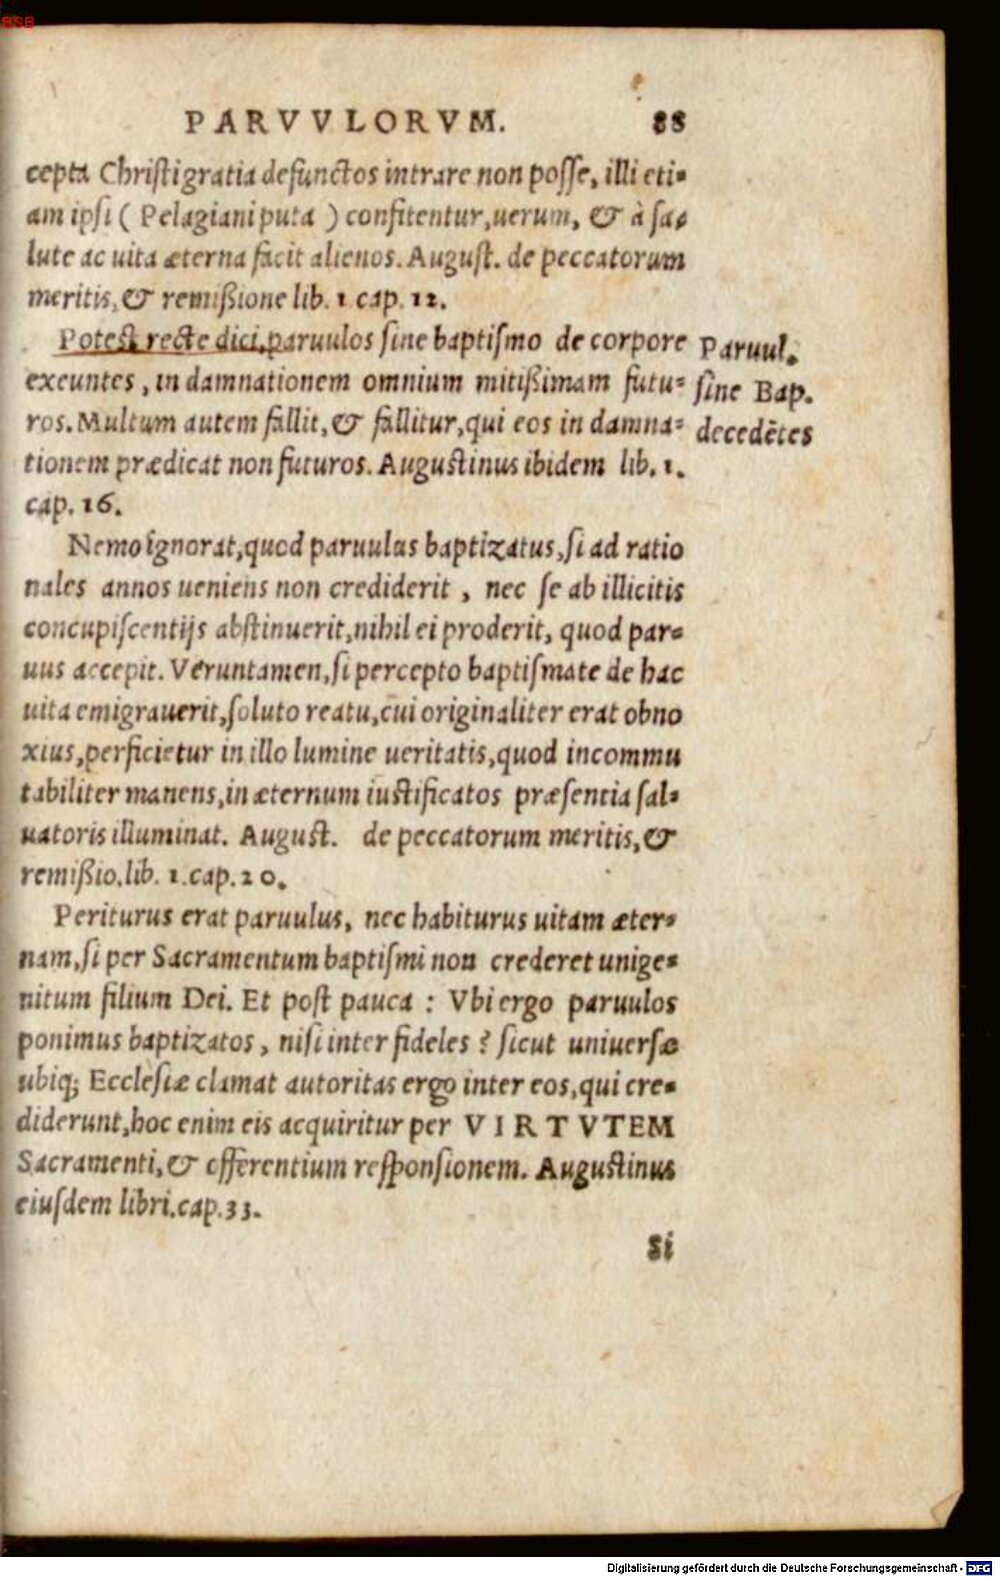 BSB
PARVVLORVM. 88
cepta Christi gratia defunctos intrare non posse, illi eti-
am ipsi ( Pelagiani puta ) confitentur, uerum, & à sa-
lute ac uita æterna facit alienos. August. de peccatorum
meritis, & remißione lib. 1 cap. 12.
Potest recte dici, paruulos sine baptismo de corpore
exeuntes, in damnationem omnium mitißimam futu-
ros. Multum autem fallit, & fallitur, qui eos in damna-
tionem prædicat non futuros. Augustinus ibidem lib. 1.
cap. 16.
Paruul.
sine Bap.
decedētes
Nemo ignorat, quod paruulus baptizatus, si ad ratio
nales annos ueniens non crediderit, nec se ab illicitis
concupiscentijs abstinuerit, nihil ei proderit, quod par-
uus accepit. Veruntamen, si percepto baptismate de hac
uita emigrauerit, soluto reatu, cui originaliter erat obno
xius, perficietur in illo lumine ueritatis, quod incommu
tabiliter manens, in æternum iustificatos præsentia sal-
uatoris illuminat. August. de peccatorum meritis, &
remißio. lib. 1. cap. 20.
Periturus erat paruulus, nec habiturus uitam æter-
nam, si per Sacramentum baptismi non crederet unige-
nitum filium Dei. Et post pauca : Vbi ergo paruulos
ponimus baptizatos, nisi inter fideles ? sicut uniuersæ
ubiq; Ecclesiæ clamat autoritas ergo inter eos, qui cre-
diderunt, hoc enim eis acquiritur per VIRTVTEM
Sacramenti, & offerentium responsionem. Augustinus
eiusdem libri. cap. 33.
Si
Digitalisierung gefördert durch die Deutsche Forschungsgemeinschaft - DFG